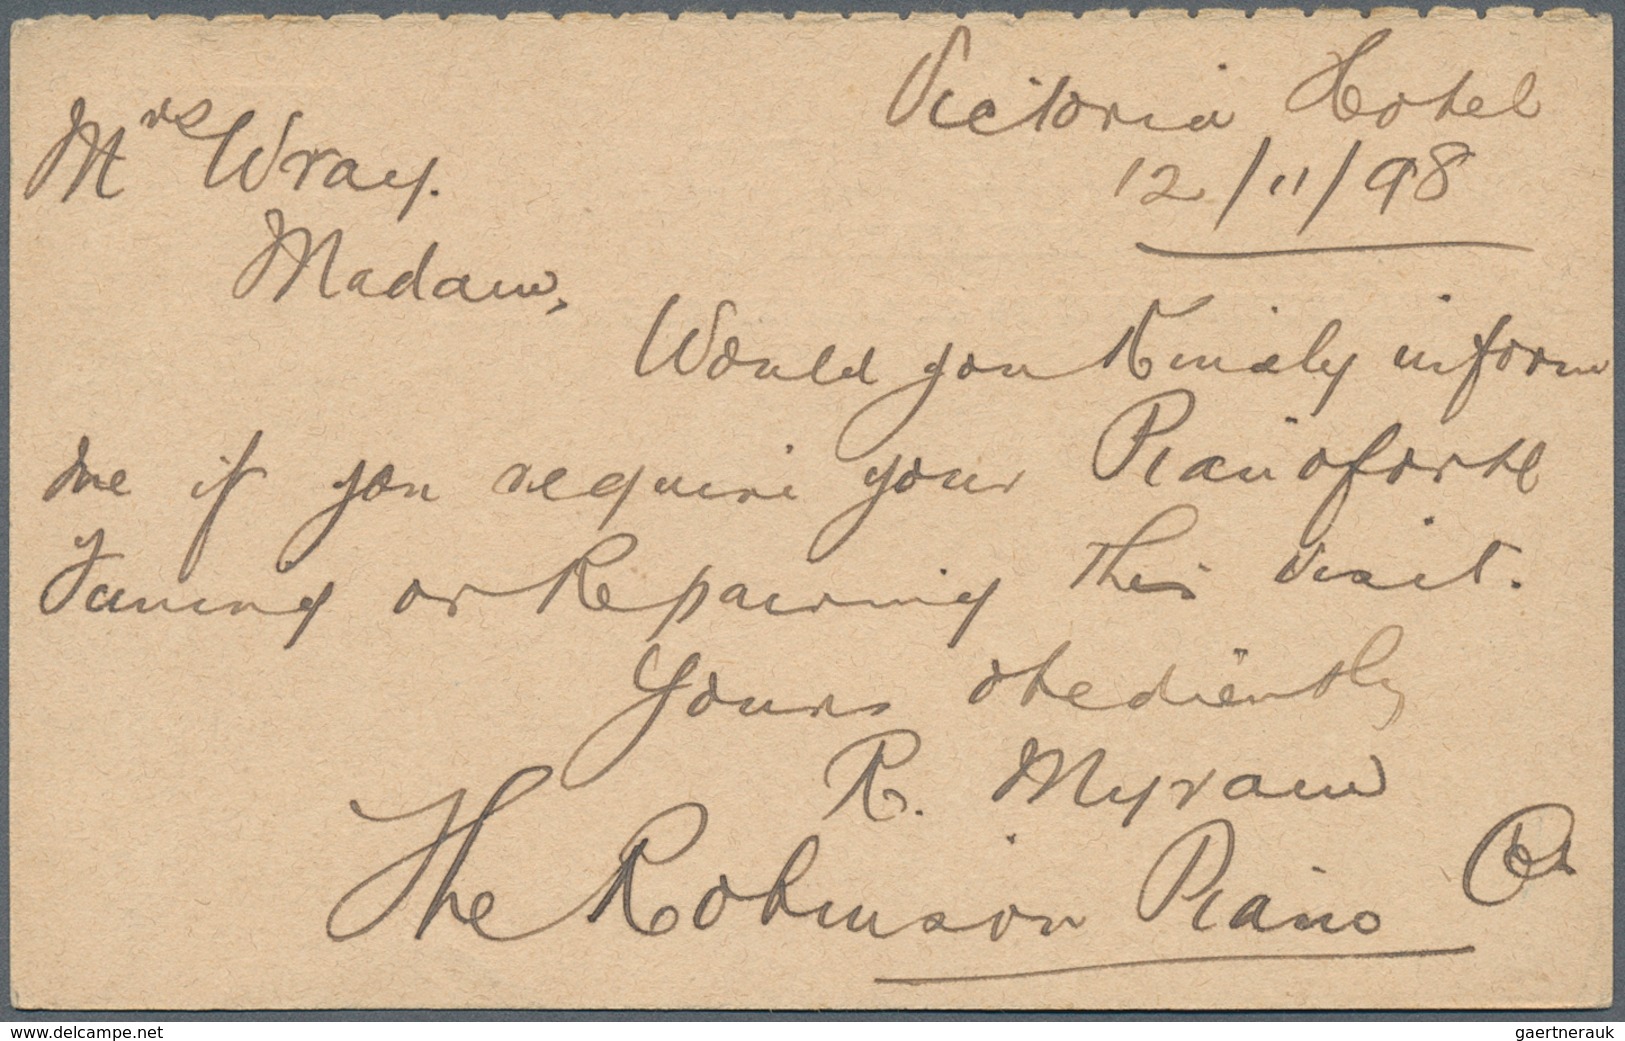 Victoria Hotel
12/11/98
Mrs Wray.
Madam,
Would you Kindly inform
me if you require your Pianoforte
Tuning or Repairing this visit.
Yours obediently
R. Myram
The Robinson Piano Co.
www.delcampe.net
gaertnerauk